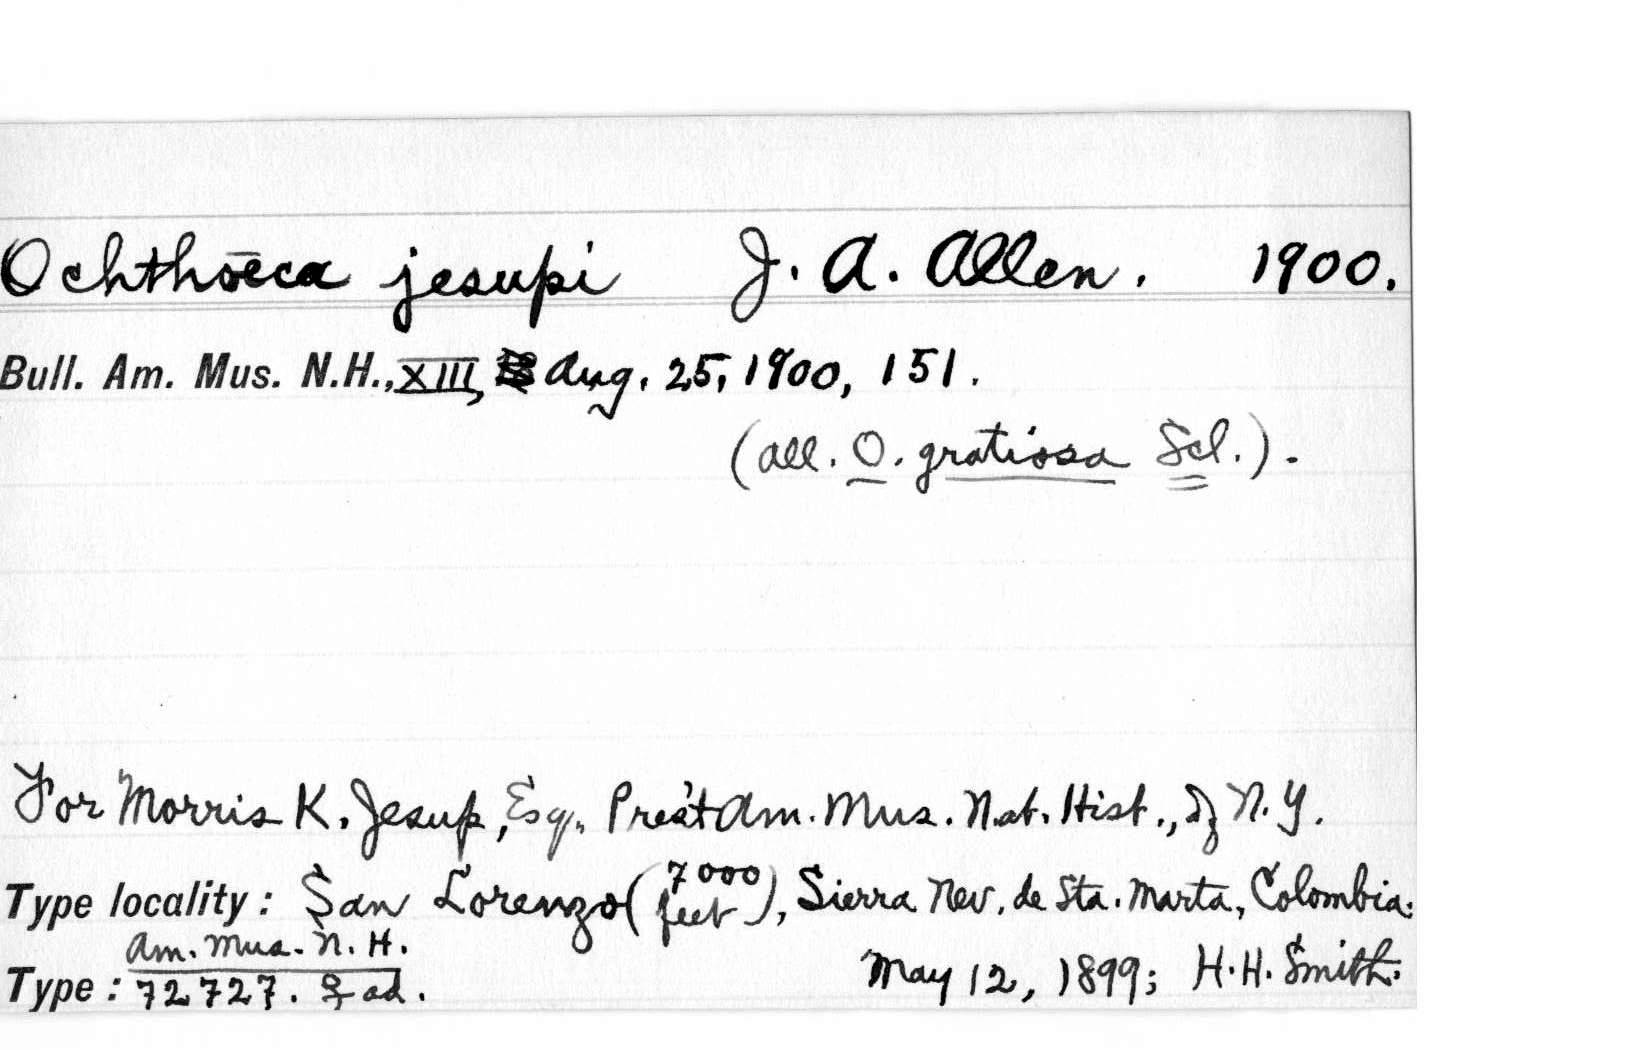 Ochthōeca jesupi J. A. Allen. 1900.
Bull. Am. Mus. N.H., XIII, Aug. 25, 1900, 151.
(all. O. gratiosa Scl.).
For Morris K. Jesup, Esq., Pres't Am. Mus. Nat. Hist., of N.Y.
Type locality: San Lorenzo (7000 feet), Sierra Nev. de Sta. Marta, Colombia:
Am. Mus. N. H.
Type: 72727. ♀ ad. May 12, 1899; H. H. Smith.